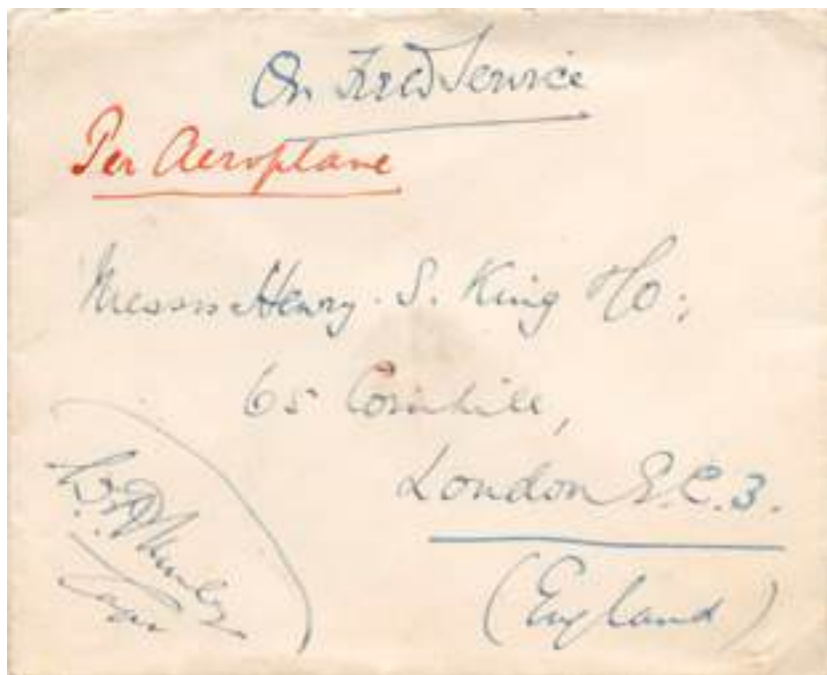 On Field Service
Per Aeroplane
Messrs Henry. S. King & Co:
65 Cornhill,
London E.C.3.
(England)